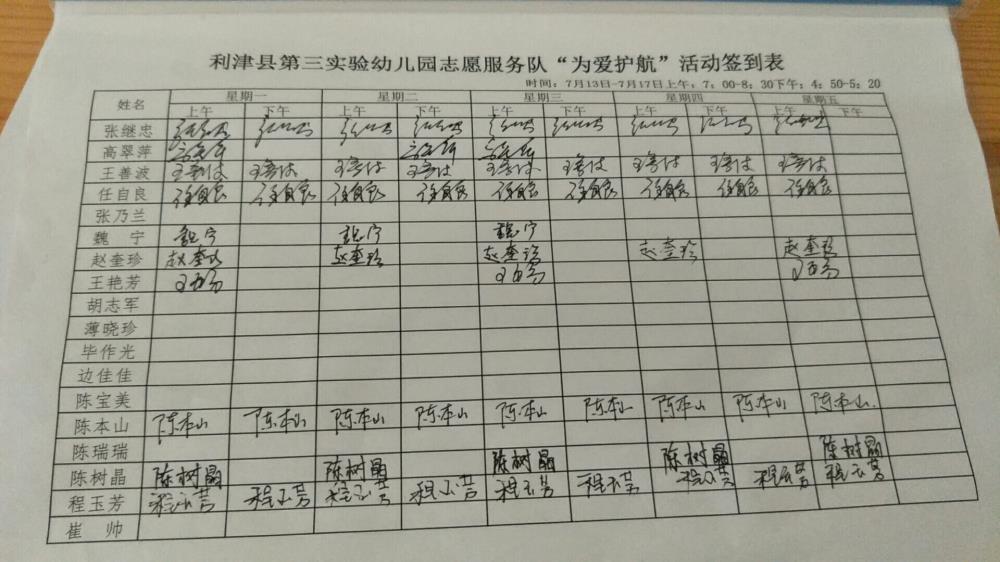 利津县第三实验幼儿园志愿服务队“为爱护航”活动签到表
时间：7月13日-7月17日上午：7：00-8：30下午：4：50-5：20
姓名 星期一 星期二 星期三 星期四 星期五
上午 下午 上午 下午 上午 下午 上午 下午 上午 下午
张继忠
高翠萍
王善波 王善波 王善波 王善波 王善波 王善波 王善波 王善波 王善波 王善波
任自良 任自良 任自良 任自良 任自良 任自良 任自良 任自良 任自良 任自良
张乃兰
魏 宁 魏宁 魏宁 魏宁
赵奎珍 赵奎珍 赵奎珍 赵奎珍 赵奎珍 赵奎珍
王艳芳
胡志军
薄晓珍
毕作光
边佳佳
陈宝美
陈本山 陈本山 陈本山 陈本山 陈本山 陈本山 陈本山 陈本山 陈本山 陈本山
陈瑞瑞 陈树晶 陈树晶 陈树晶
陈树晶 陈树晶 陈树晶
程玉芳 程玉芳 程玉芳 程玉芳 程玉芳 程玉芳 程玉芳 程玉芳 程玉芳 程玉芳
崔 帅